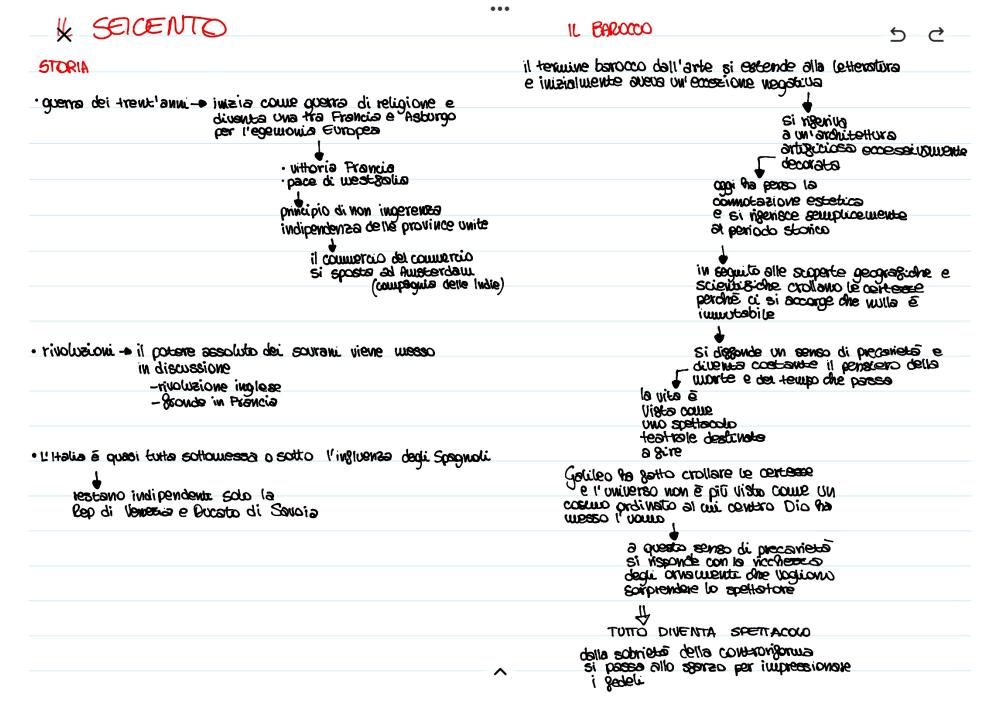 IL SEICENTO
STORIA
• guerra dei trent'anni → inizia come guerra di religione e
diventa una tra Francia e Asburgo
per l'egemonia Europea
• vittoria Francia
• pace di westfalia
principio di non ingerenza
indipendenza delle province unite
il commercio del commercio
si sposta ad Amsterdam
(compagnia delle Indie)
• rivoluzioni → il potere assoluto dei sovrani viene messo
in discussione
- rivoluzione inglese
- fronda in Francia
• L'Italia è quasi tutta sottomessa o sotto l'influenza degli Spagnoli
restano indipendenti solo la
Rep di Venezia e Ducato di Savoia
IL BAROCCO
il termine barocco dall'arte si estende alla letteratura
e inizialmente aveva un'accezione negativa
si riferiva
a un'architettura
artificiosa eccessivamente
decorata
oggi ha perso la
connotazione estetica
e si riferisce semplicemente
al periodo storico
in seguito alle scoperte geografiche e
scientifiche crollano le certezze
perché ci si accorge che nulla è
immutabile
si diffonde un senso di precarietà e
diventa costante il pensiero della
morte e del tempo che passa
la vita è
vista come
uno spettacolo
teatrale destinato
a fire
Galileo ha fatto crollare le certezze
e l'universo non è più visto come un
cosmo ordinato al cui centro Dio ha
messo l'uomo
a questo senso di precarietà
si risponde con la ricchezza
degli ornamenti che vogliono
sorprendere lo spettatore
TUTTO DIVENTA SPETTACOLO
dalla sobrietà della controriforma
si passa allo sfarzo per impressionare
i fedeli